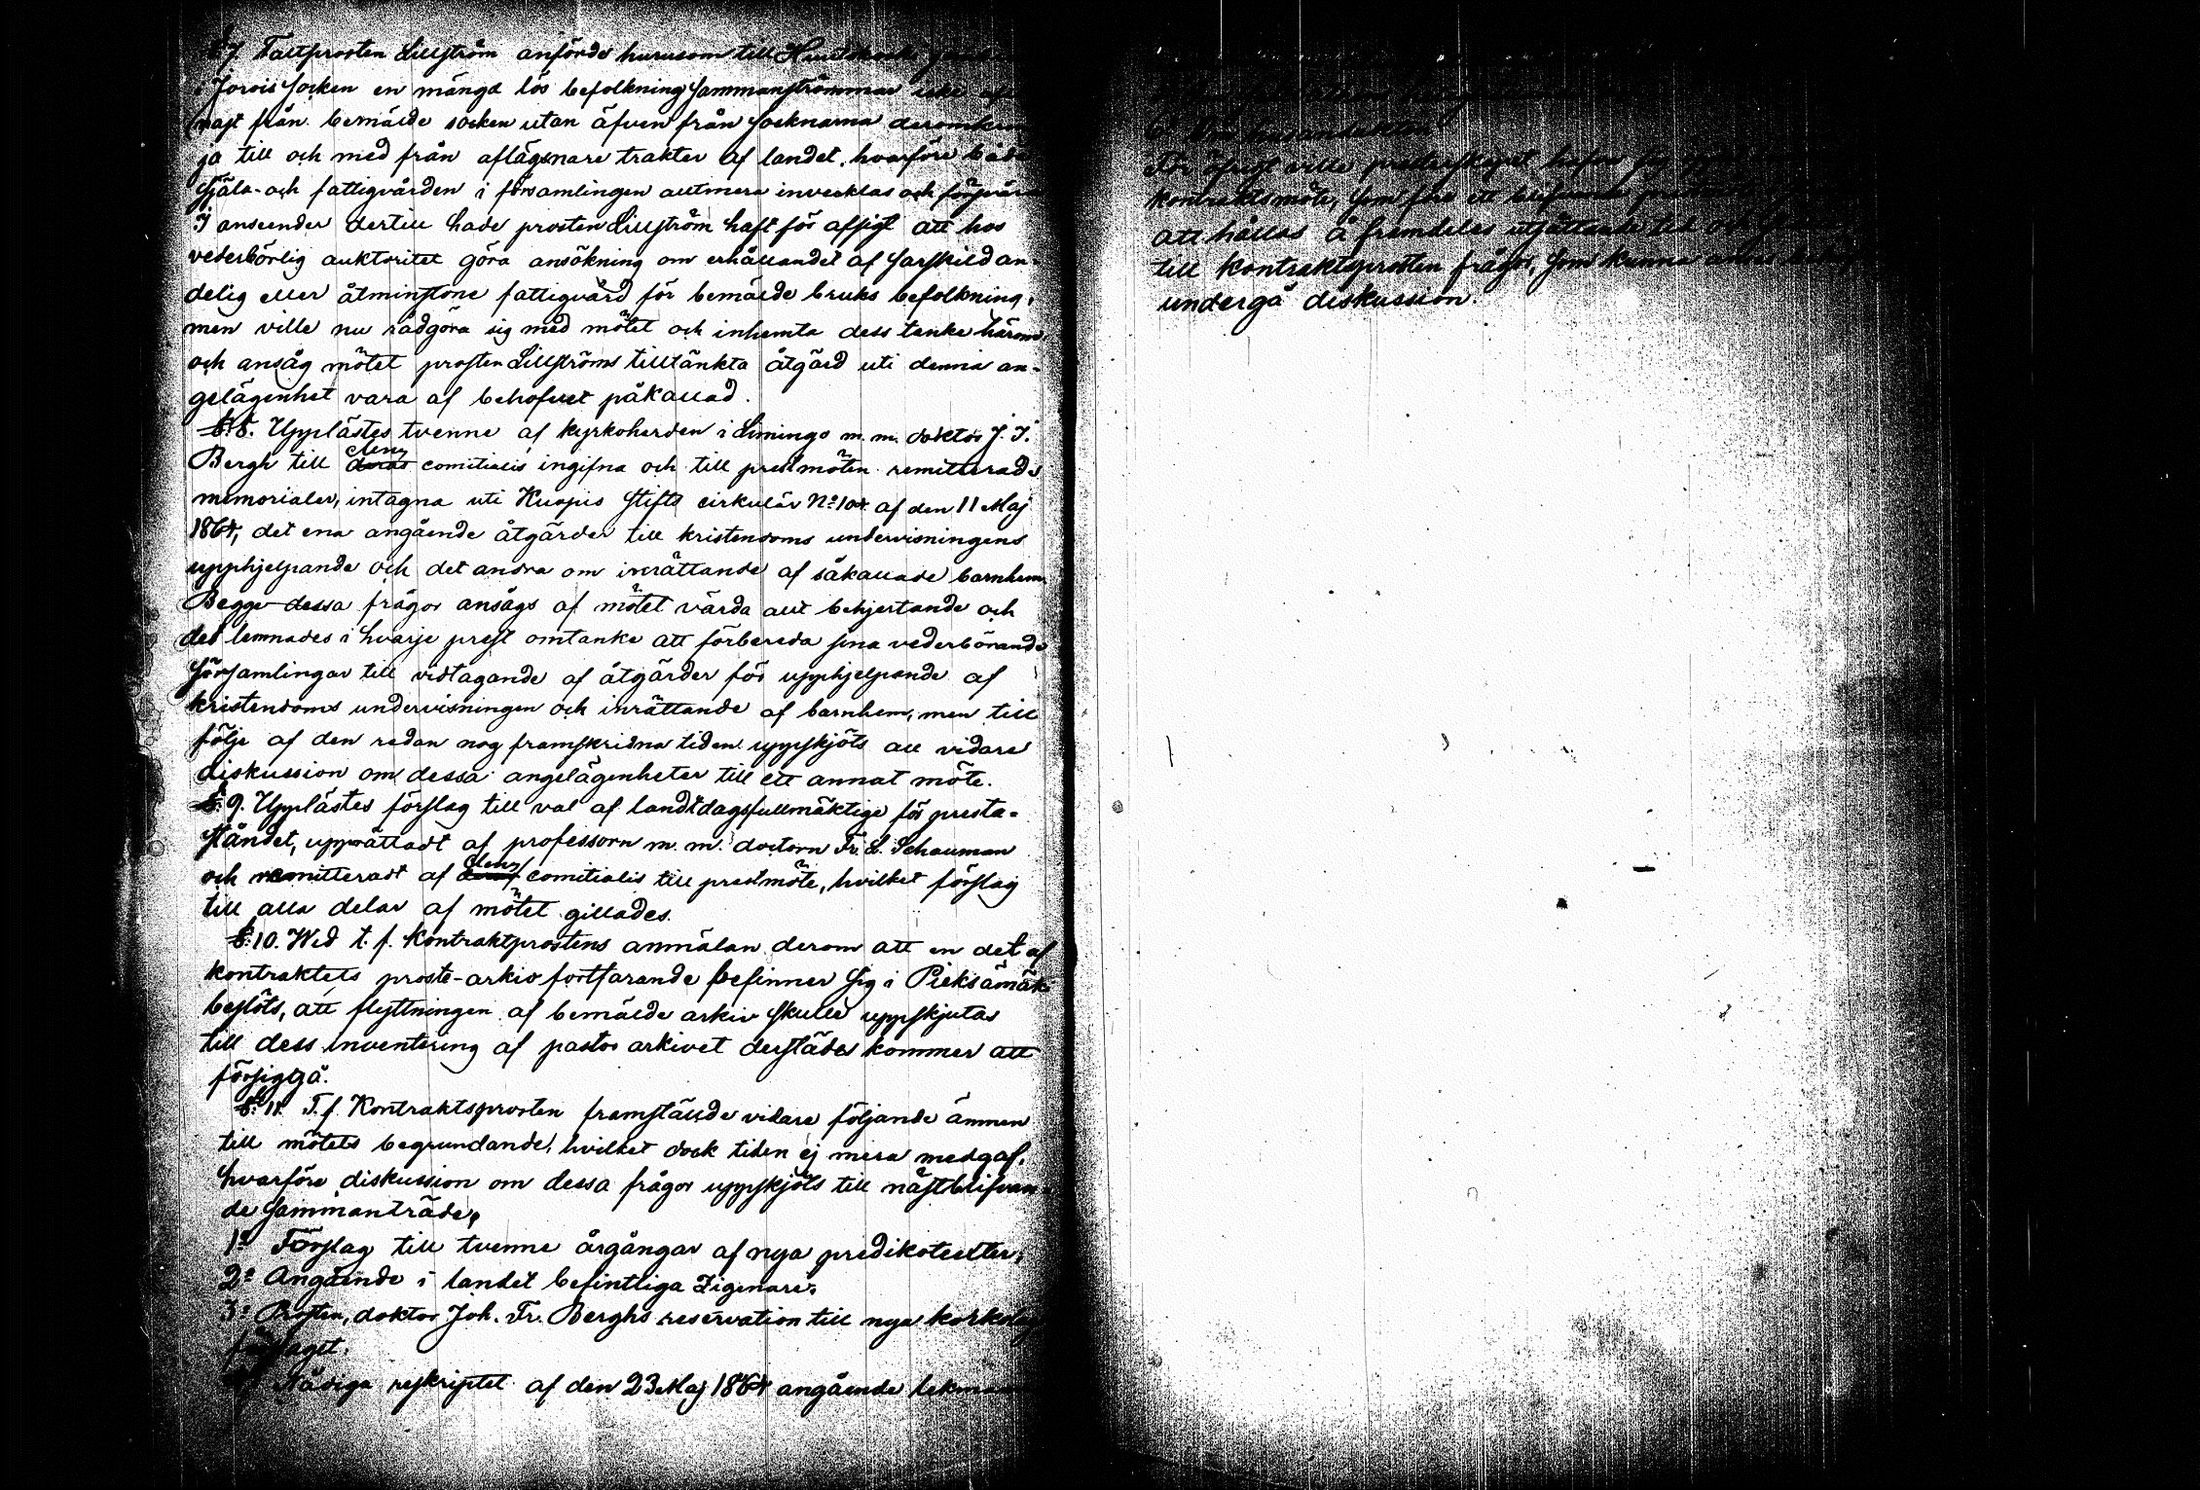 §7. Faltprosten Lillström anförde hurusom till
i Jorois socken en mängd lös befolkning sammanströmmar icke
nast från bemälde socken utan äfven från socknarna deromkring
ja till och med från aflägsnare trakter af landet, hvarföre både
själa- och fattigvården i församlingen alltmera invecklas och försvåras
I anseende dertill hade prosten Lillström haft för afsigt att hos
vederbörlig auktoritet göra ansökning om erhållandet af särskild an-
delig eller åtminstone fattigvård för bemälde bruks befolkning,
men ville nu rådgöra sig med mötet och inhemta dess tanke härom
och ansåg mötet prosten Lillströms tilltänkta åtgärd uti denna an-
gelägenhet vara af behofvet påkallad.
§.8. Upplästes tvenne af kyrkoherden i Limingo m.m. doktor J. I.
Bergh till cleri comitialis ingifna och till prestmöten remitterade
memorialer, intagna uti Kuopio Stifts cirkulär No 104 af den 11 Maj
1864, det ena angående åtgärder till kristendoms undervisningens
upphjelpande och det andra om inrättande af såkallade barnhem.
Begge dessa frågor ansågs af mötet värda allt behjertande och
det lemnades i hvarje prest omtanke att förbereda sina vederbörande
församlingar till vidtagande af åtgärder för upphjelpande af
kristendoms undervisningen och inrättande af barnhem, men till
följe af den redan nog framskridna tiden uppskjöts all vidare
diskussion om dessa angelägenheter till ett annat möte.
§.9. Upplästes förslag till val af landtdagsfullmäktige för presta-
ståndet, upprättadt af professorn m.m. doctorn Fr. L. Schauman
och remitteradt af cleri comitialis till prestmöte, hvilket förslag
till alla delar af mötet gillades.
§.10. Wid t.f. Kontraktprostens anmälan derom att en del af
kontraktets proste-arkiv fortfarande befinner sig i Pieksämäki
beslöts, att flyttningen af bemälde arkiv skulle uppskjutas
till dess inventering af pastors arkivet derstädes kommer att
försiggå.
§.11. T.f. Kontraktsprosten framställde vidare följande ämnen
till mötets begrundande, hvilket dock tiden ej mera medgaf,
hvarföre diskussion om dessa frågor uppskjöts till nästblifvan-
de sammanträde,
1o Förslag till tvenne årgångar af nya predikotexter,
2o Angående i landet befintliga Zigenare,
3o Prosten, doktor Joh. Fr. Berghs reservation till nya kyrkolag
förslaget,
Nådiga reskriptet af den 23 Maj 1864 angående
För öfrigt ville presterskapet hafva
kontraktsmöte, som före ett blifvande
att hållas å framdeles utsättande tid och
till kontraktsprosten frågor, som kunna
undergå diskussion.